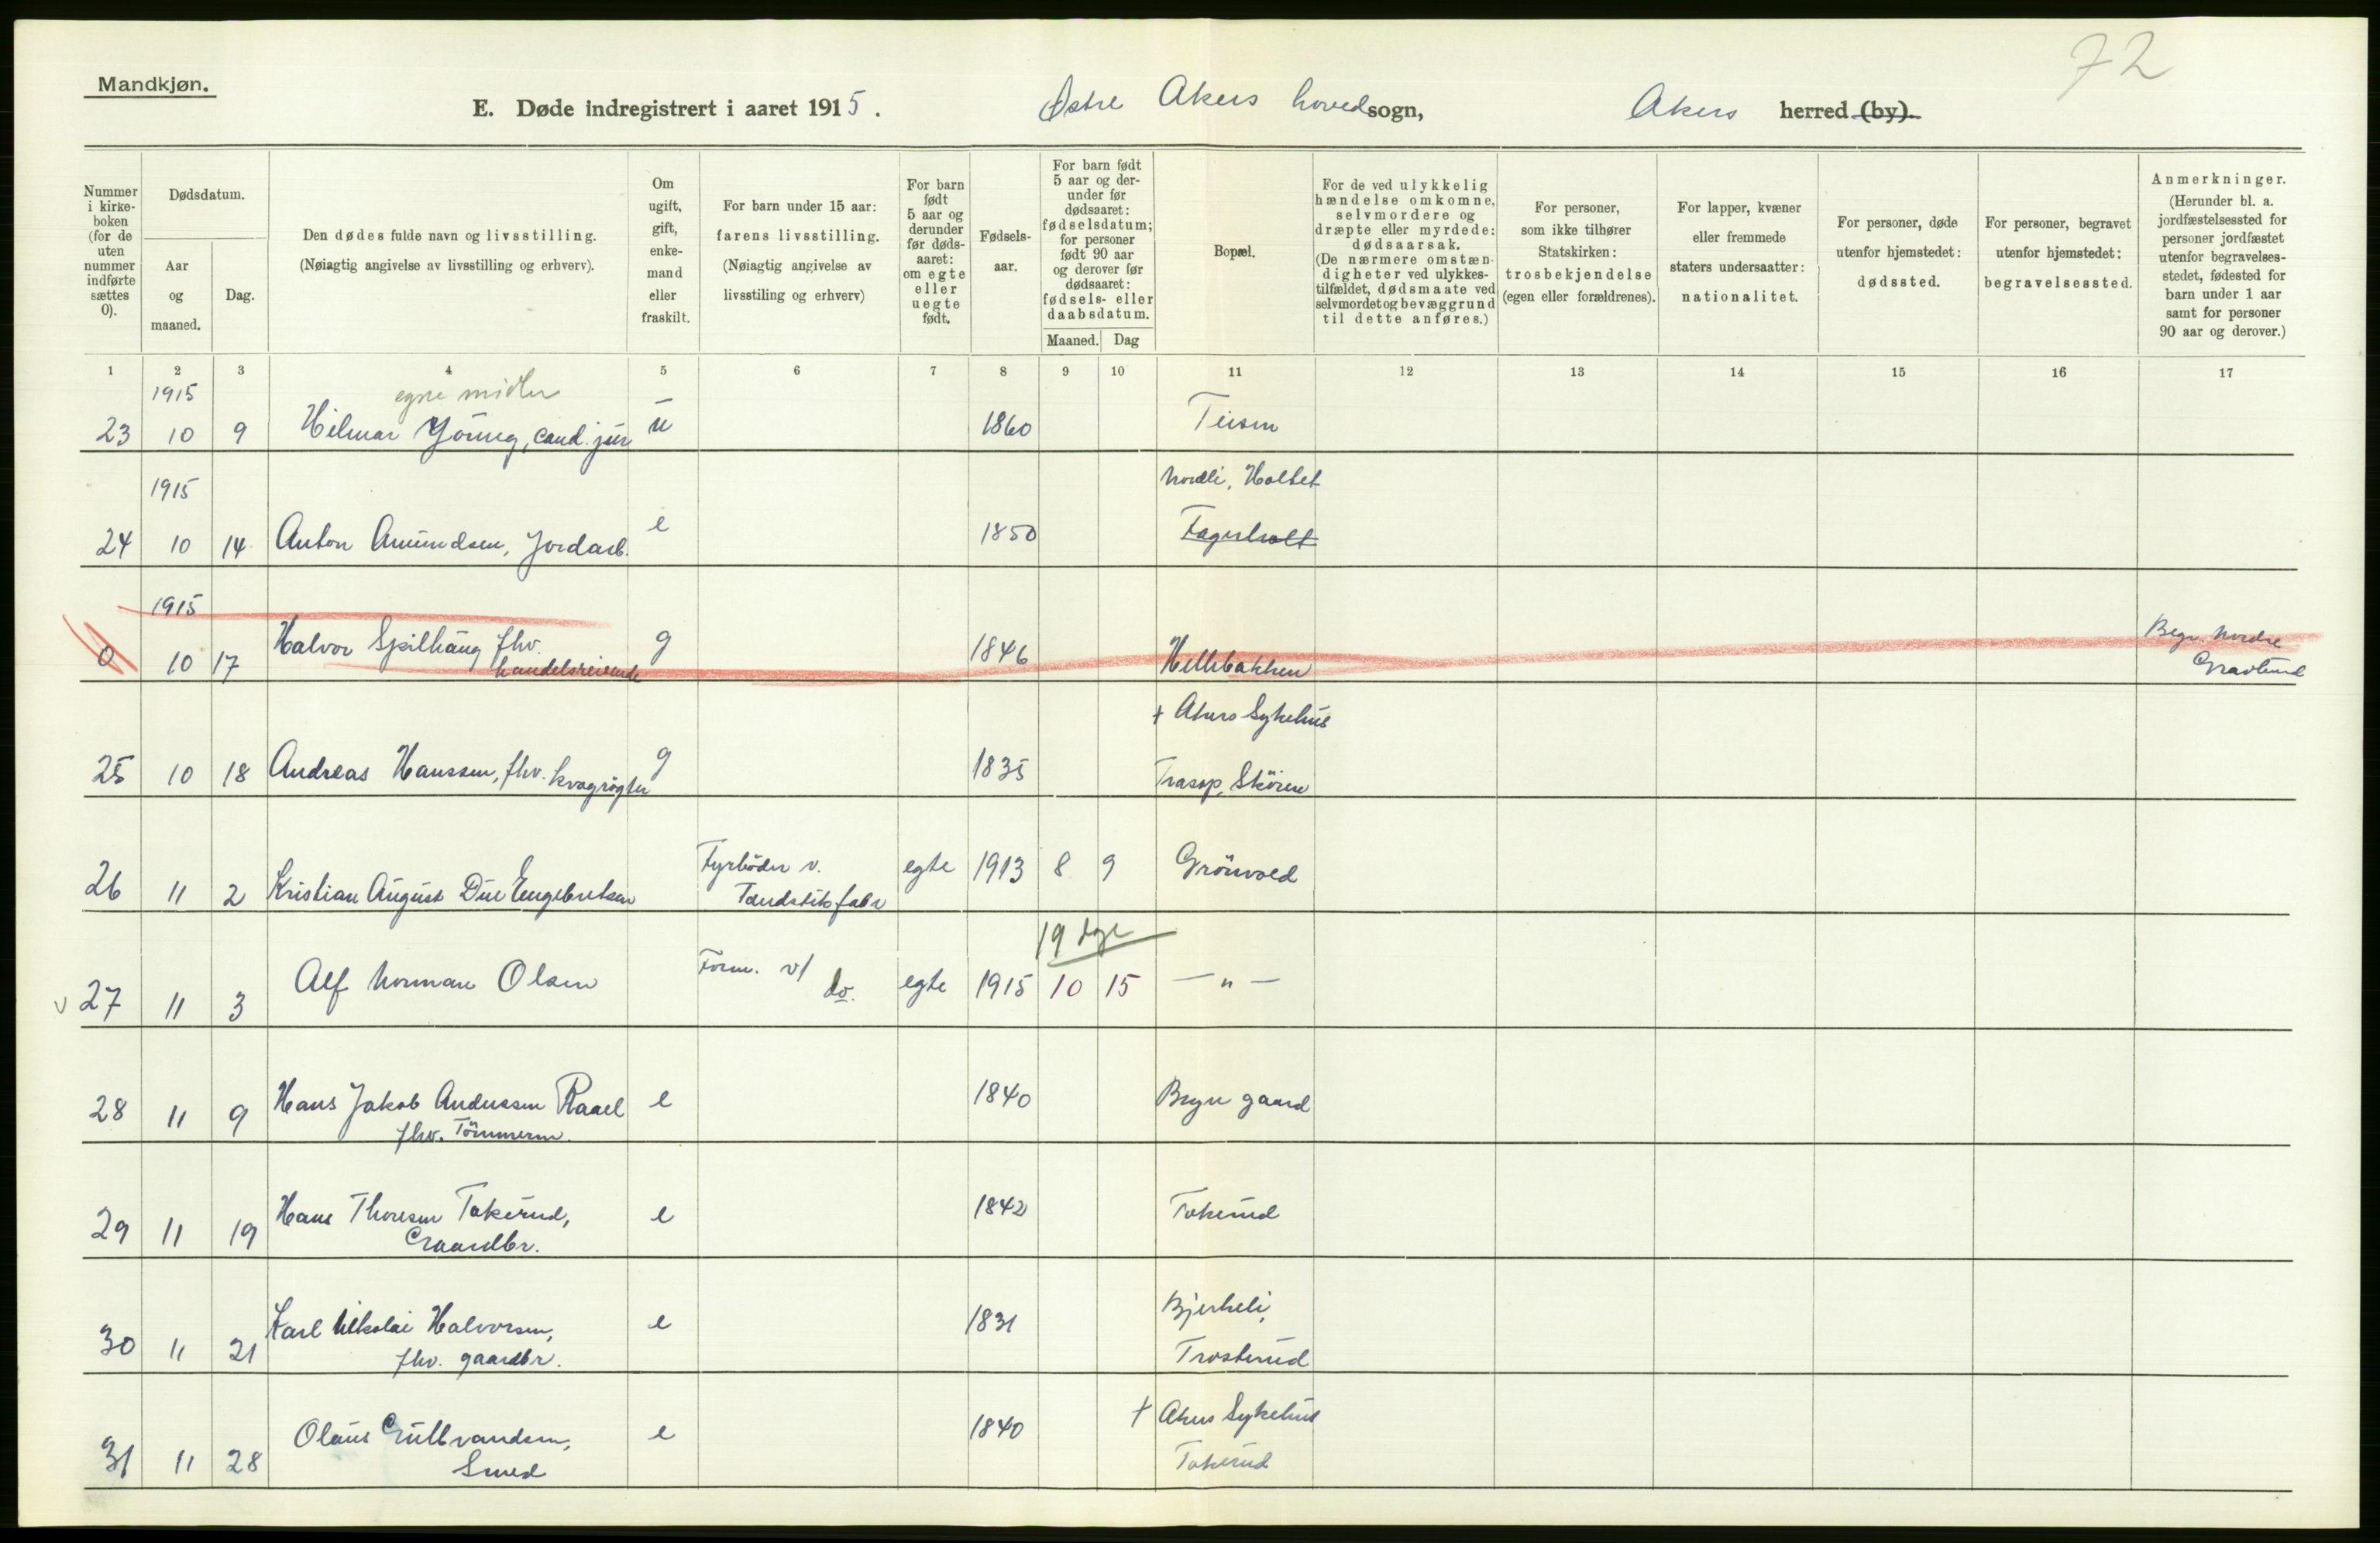 72
Mandkjøn.
E. Døde indregistrert i aaret 1915. Østre Akers hovedsogn, Akers herred (by).
Nummer i kirkeboken (for de uten nummer indførte sættes 0).
Dødsdatum.
Aar og maaned.
Dag.
Den dødes fulde navn og livsstilling.
(Nøiagtig angivelse av livsstilling og erhverv).
Om ugift, gift, enkemand eller fraskilt.
For barn under 15 aar: farens livsstilling.
(Nøiagtig angivelse av livsstiling og erhverv)
For barn født 5 aar og derunder før dødsaaret: om egte eller uegte født.
Fødselsaar.
For barn født 5 aar og derunder før dødsaaret: fødselsdatum; for personer født 90 aar og derover før dødsaaret: fødsels- eller daabsdatum.
Maaned. Dag
Bopæl.
For de ved ulykkelig hændelse omkomne, selvmordere og dræpte eller myrdede: dødsaarsak.
(De nærmere omstændigheter ved ulykkestilfældet, dødsmaate ved selvmordet og bevæggrund til dette anføres.)
For personer, som ikke tilhører Statskirken: trosbekjendelse (egen eller forældrenes).
For lapper, kvæner eller fremmede staters undersaatter: nationalitet.
For personer, døde utenfor hjemstedet: dødssted.
For personer, begravet utenfor hjemstedet: begravelsessted.
Anmerkninger.
(Herunder bl. a. jordfæstelsessted for personer jordfæstet utenfor begravelsesstedet, fødested for barn under 1 aar samt for personer 90 aar og derover.)
1 2 3 4 5 6 7 8 9 10 11 12 13 14 15 16 17
1915 egne midler
23 10 9 Hilmar Young, cand. jur u 1860 Teisen
1915 Nordli, Holtet
24 10 14 Anton Amundsen, Jordarb. e 1850 Fagerholt
1915
0 10 17 Halvor Spilhaug fhv. g 1846 Hellebakken Begr. Nordre
handelsreisende Gravlund
+ Akers Sykehus
25 10 18 Andreas Hanssen, fhv. kvægrøgter g 1835 Trasop, Skøien
26 11 2 Kristian August Due Engebretsen Fyrbøder v. egte 1913 8 9 Grönvold
Tændstikfabr
19 dge
v 27 11 3 Alf Norman Olsen Form. v/ do. egte 1915 10 15 — " —
28 11 9 Hans Jakob Anderssen Raael e 1840 Bryn gaard
fhv. Tømmerm.
29 11 19 Hans Thoresen Tokerud, e 1842 Tokerud
Gaardbr.
30 11 21 Karl Nikolai Halvorsen, e 1831 Bjerkeli,
fhv. gaardbr. Trosterud
31 11 28 Olaus Gulbrandsen, e 1840 + Akers Sykehus
Smed Tokerud